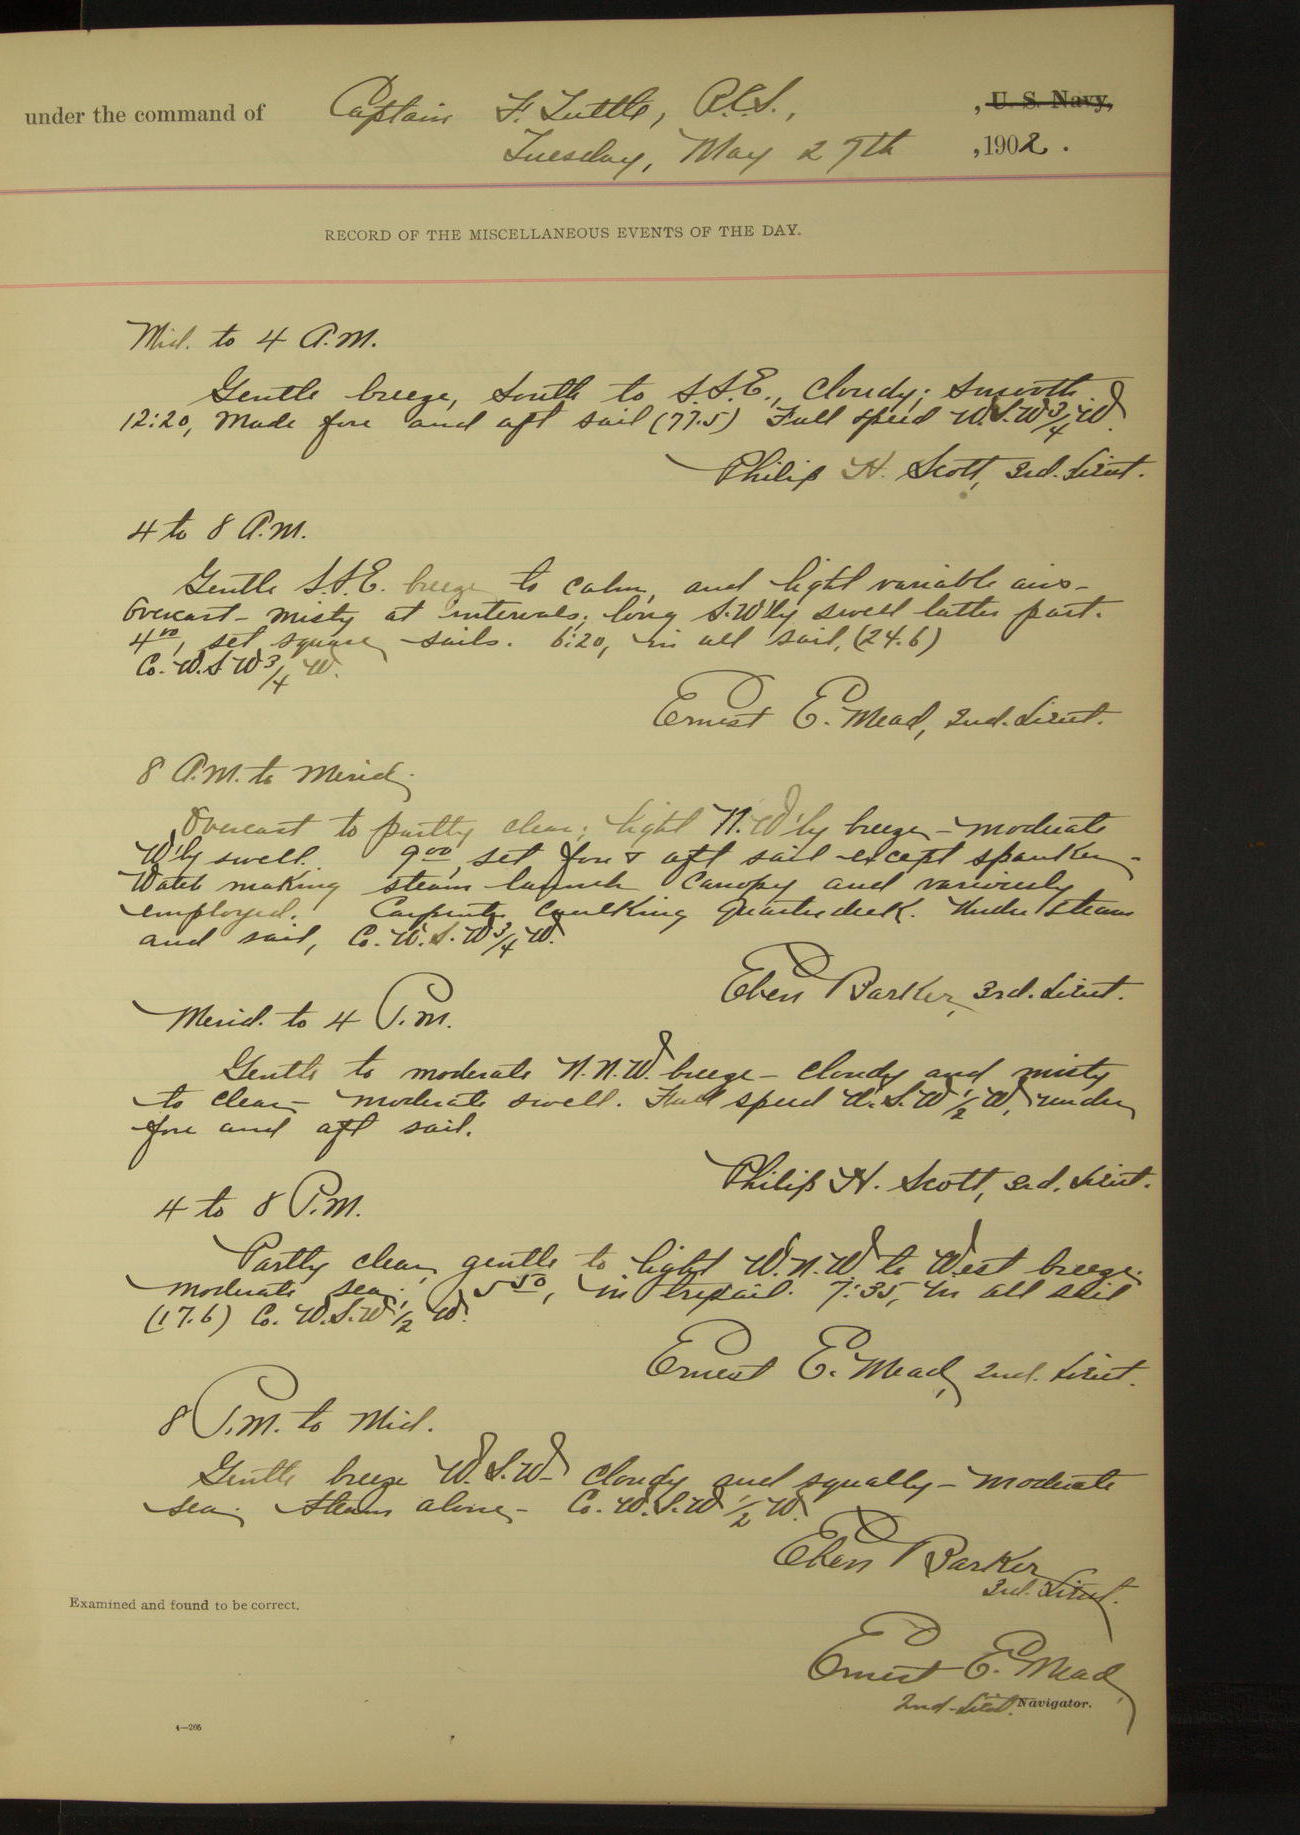 under the command of Captain F. Tuttle, R.C.S., , U. S. Navy,
Tuesday, May 27th , 1902.
RECORD OF THE MISCELLANEOUS EVENTS OF THE DAY.
Mid. to 4 A.M.
Gentle breeze, South to S.S.E., cloudy; smooth.
12:20, Made fore and aft sail (77.5) Full speed W.S.W 3/4 W.
Philip H. Scott, 3rd. Lieut.
4 to 8 A.M.
Gentle S.S.E. breeze to calm, and light variable airs -
Overcast - misty at intervals; long S.W'ly swell latter part.
4 00, set square sails. 6:20, in all sail, (24.6)
Co. W.S.W 3/4 W.
Ernest E. Mead, 2nd. Lieut.
8 A.M. to Merid.
Overcast to partly clear; light N.W'ly breeze - moderate
W'ly swell. 9 00, set fore & aft sail except spanker -
Watch making steam launch canopy and variously
employed. Carpenter caulking quarterdeck. Under steam
and sail, Co. W.S.W 3/4 W.
Eben Barker, 3rd. Lieut.
Merid. to 4 P.M.
Gentle to moderate N.N.W. breeze - cloudy and misty
to clear - moderate swell. Full speed W.S.W 1/2 W, under
fore and aft sail.
Philip H. Scott, 3rd. Lieut.
4 to 8 P.M.
Partly clear, gentle to light W.N.W to West breeze.
moderate sea; 5 50, in trysail. 7:35, In all sail
(17.6) Co. W.S.W 1/2 W.
Ernest E. Mead, 2nd. Lieut.
8 P.M. to Mid.
Gentle breeze W.S.W - cloudy and squally - moderate
sea, steam alone - Co. W.S.W 1/2 W.
Eben Barker
3rd. Lieut.
Examined and found to be correct.
Ernest E. Mead,
2nd. Lieut. Navigator.
4—205